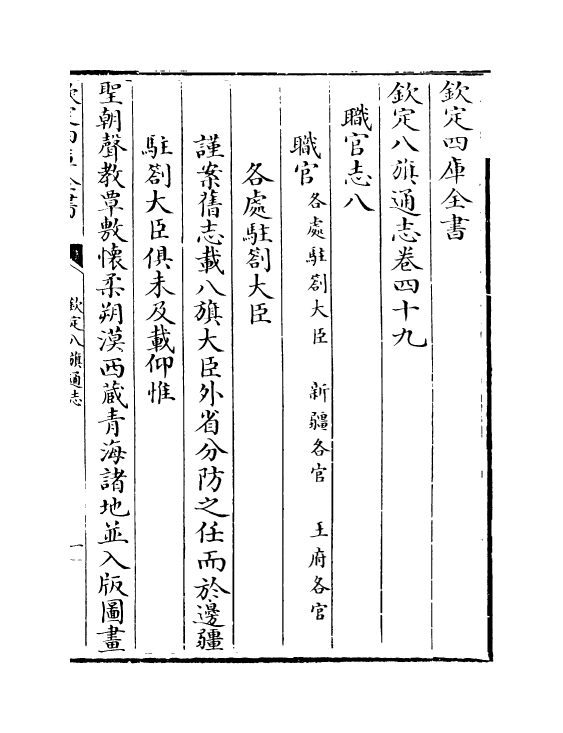 欽定四庫全書
欽定八旗通志卷四十九
職官志八
職官各處駐劄大臣 新疆各官 王府各官
各處駐劄大臣
謹案舊志載八旗大臣外省分防之任而於邊疆
駐劄大臣俱未及載仰惟
聖朝聲教覃敷懷柔朔漠西藏青海諸地並入版圖畫
欽定四庫全書 欽定八旗通志 一